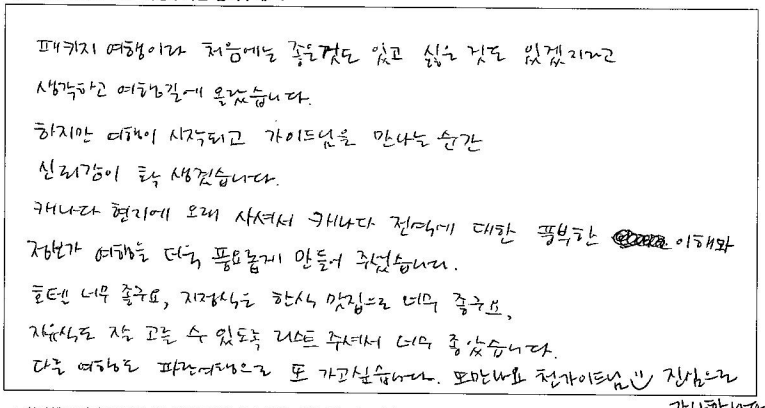 패키지 여행이라 처음에는 좋은것도 있고 싫은 것도 있겠지라고
생각하고 여행길에 올랐습니다.
하지만 여행이 시작되고 가이드님을 만나는 순간
신뢰감이 탁 생겼습니다.
캐나다 현지에 오래 사셔서 캐나다 전역에 대한 풍부한 이해와
정보가 여행을 더욱 풍요롭게 만들어 주었습니다.
호텔 너무 좋구요, 지정식은 한식 맛집으로 너무 좋구요,
자유식도 잘 고를 수 있도록 리스트 주셔서 너무 좋았습니다.
다음 여행도 파란여행으로 또 가고싶습니다. 또만나요 천가이드님 진심으로